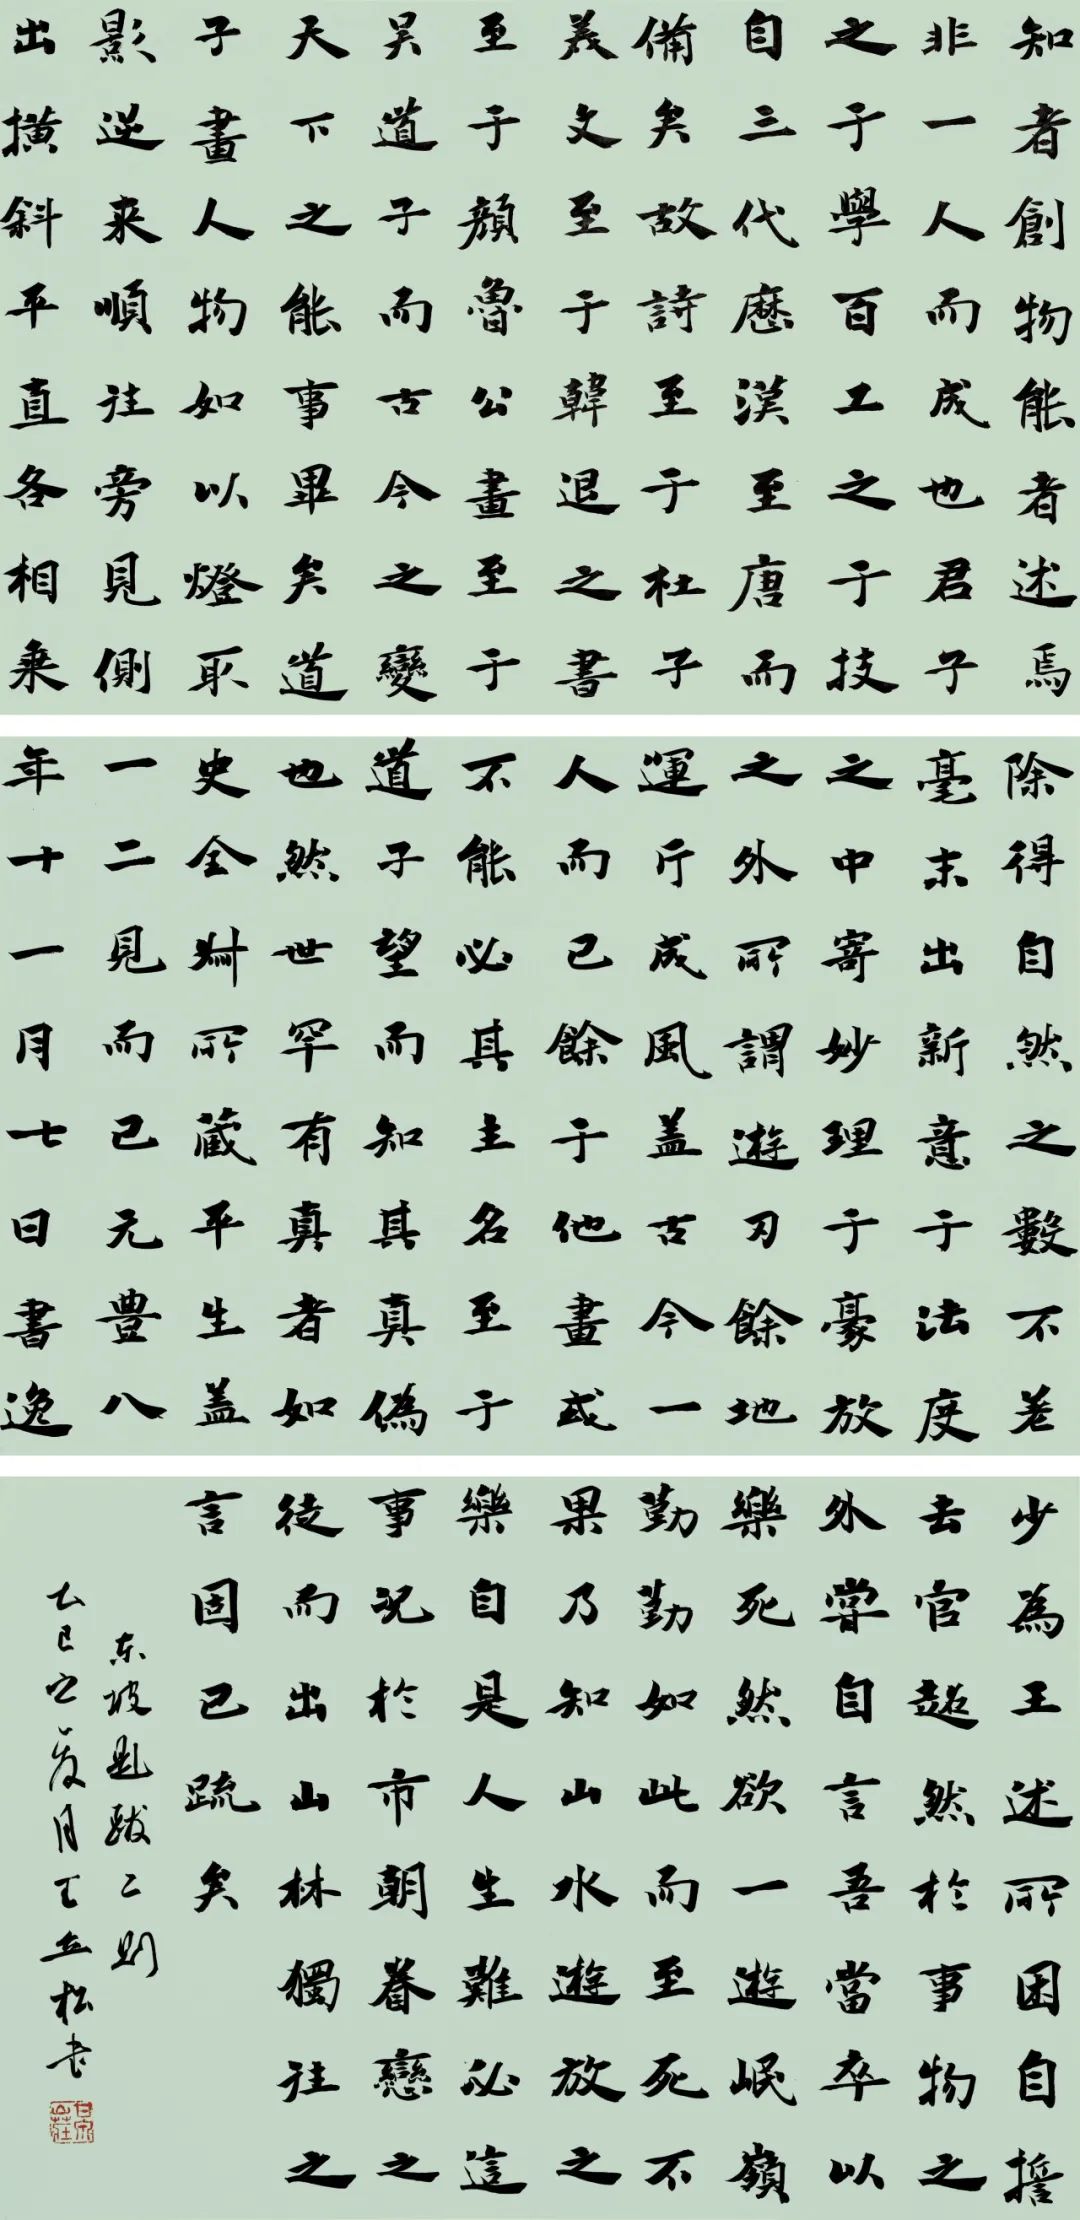 知者創物能者述焉
非一人而成也君子
之于學百工之于技
自三代歷漢至唐而
備矣故詩至于杜子
美文至于韓退之書
至于顏魯公畫至于
吴道子而古今之變
天下之能事畢矣道
子畫人物如以燈取
影逆來順往旁見側
出横斜平直各相乘
除得自然之數不差
毫末出新意于法度
之中寄妙理于豪放
之外所謂遊刃餘地
運斤成風盖古今一
人而已餘于他畫或
不能必其主名至于
道子望而知其真偽
也然世罕有真者如
史全叔所藏平生盖
一二見而已元豐八
年十一月七日書逸
少為王述所困自誓
去官超然於事物之
外嘗自言吾當卒以
樂死然欲一遊岷嶺
勤勤如此而至死不
果乃知山水遊放之
樂自是人生難必這
事况於市朝眷戀之
徒而出山林獨往之
言固已疏矣
东坡題跋二則
乙巳之夏月松书